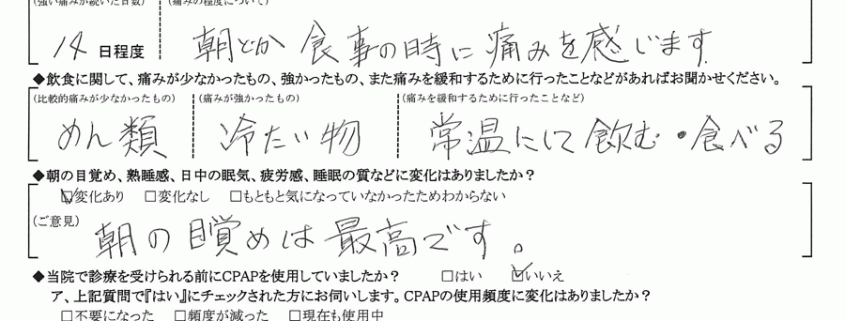 (強い痛みが続いた日数) (痛みの程度について)
14 日程度 朝とか 食事の時に痛みを感じます
◆飲食に関して、痛みが少なかったもの、強かったもの、また痛みを緩和するために行ったことなどがあればお聞かせください。
(比較的痛みが少なかったもの) (痛みが強かったもの) (痛みを緩和するために行ったことなど)
めん類 冷たい物 常温にして飲む・食べる
◆朝の目覚め、熟睡感、日中の眠気、疲労感、睡眠の質などに変化はありましたか?
☑変化あり □変化なし □もともと気になっていなかったためわからない
(ご意見)
朝の目覚めは最高です。
◆当院で診療を受けられる前にCPAPを使用していましたか? □はい ☑いいえ
ア、上記質問で『はい』にチェックされた方にお伺いします。CPAPの使用頻度に変化はありましたか?
□不要になった □頻度が減った □現在も使用中